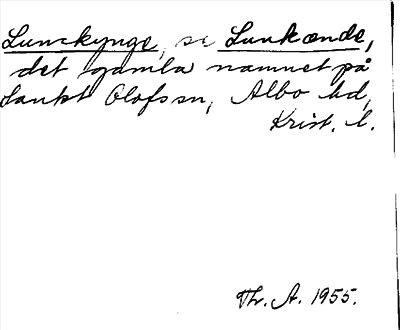 Lunckynge, se Lunkände,
det gamla namnet på
Sankt Olofs sn, Albo hd,
Krist. l.
Th. A. 1955.